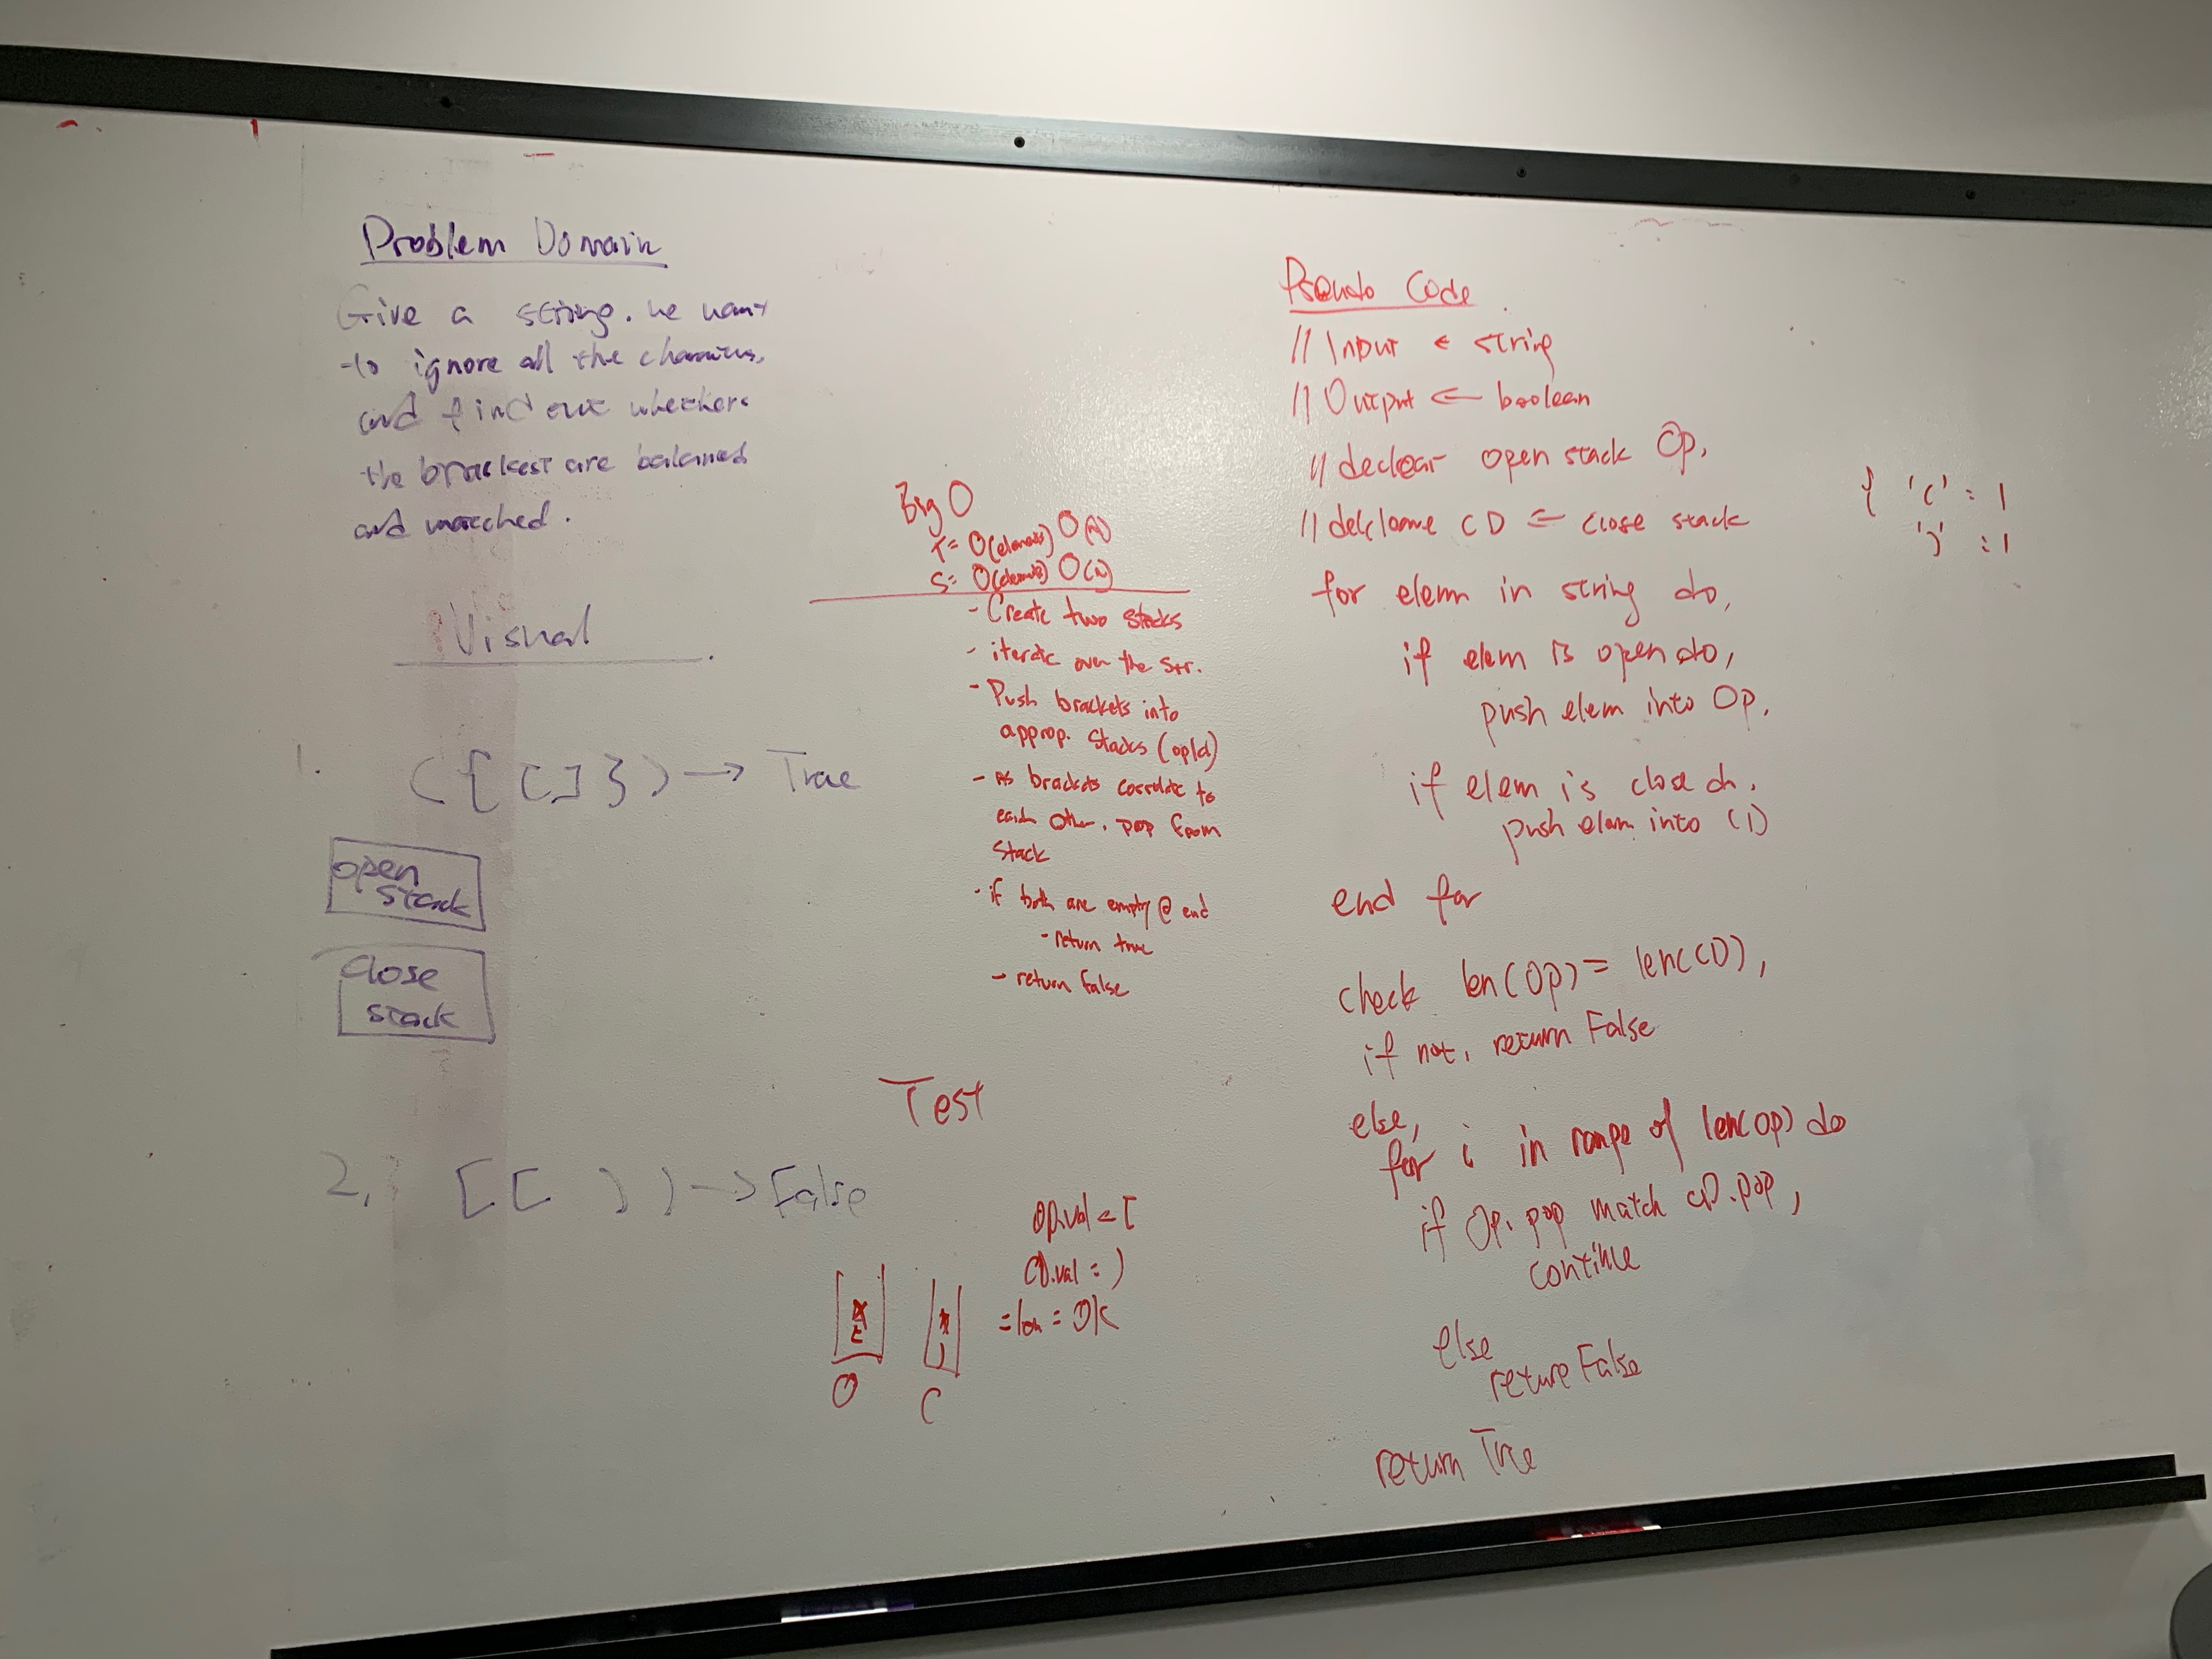 Problem Domain
Give a string. we want
to ignore all the
and find out whether
the brackest are balanced
and matched.
Visual
1. ( { [ ] } ) → True
open
stack
Close
stack
2. [ [ ) ) → False
Big O
T= O(elements) O(n)
S= O(elements) O(n)
- Create two stacks
- iterate over the str.
- Push brackets into
approp. stacks (op/cl)
- As brackets correlate to
each other, pop from
stack
- if both are empty @ end
- return true
- return false
Test
op.val = [
Cl.val = )
= len = Ok
O C
Pseudo Code
// Input ← string
// Output ← boolean
// declear open stack Op,
// CD ← close stack
for elem in string do,
if elem is open do,
push elem into Op,
if elem is close do,
push elem into
end for
check len(Op) = len(CD),
if not, return False
else,
for i in range of len(op) do
if Op.pop match CD.pop,
continue
else
return False
return True
{ '(' : 1
')' : 1